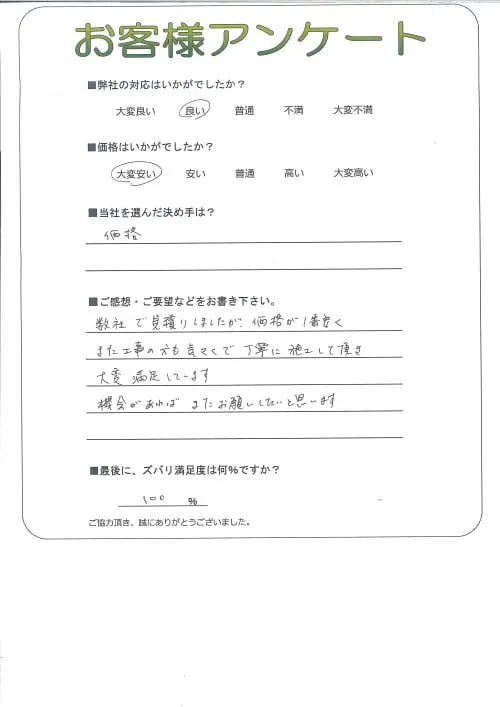 お客様アンケート
■弊社の対応はいかがでしたか？
大変良い 良い 普通 不満 大変不満
■価格はいかがでしたか？
大変安い 安い 普通 高い 大変高い
■当社を選んだ決め手は？
価格
■ご感想・ご要望などをお書き下さい。
数社で見積りしましたが、価格が1番安く
また工事の方も気さくで丁寧に施工して頂き
大変満足しています
機会があればまたお願いしたいと思います
■最後に、ズバリ満足度は何%ですか？
100 %
ご協力頂き、誠にありがとうございました。